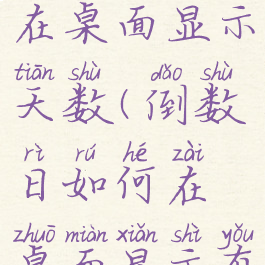 在桌面显示
tiān shù dǎo shù
天数(倒数
rì rú hé zài
日如何在
zhuō miàn xiǎn shì yǒu
桌面显示有